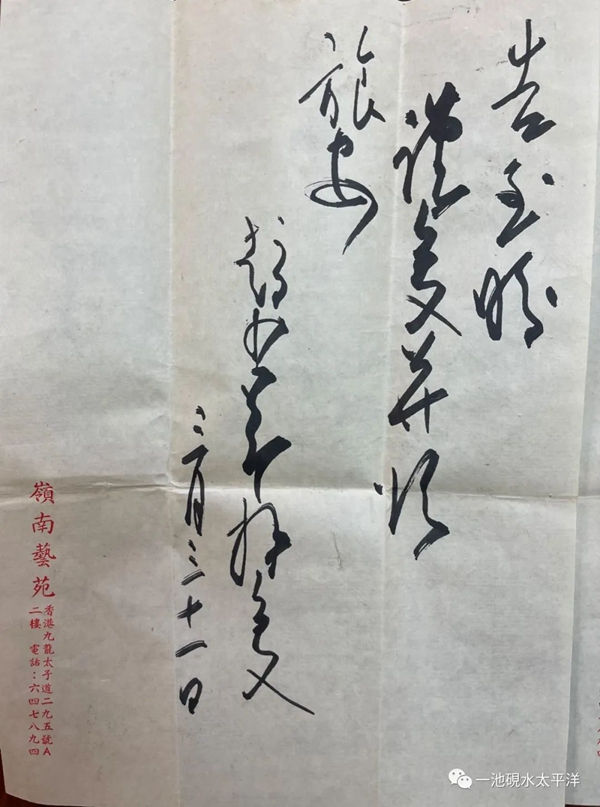 告至盼
謹復并頌
旅安
趙少昂拜復
三月三十一日
嶺南藝苑
香港九龍太子道二九五號A
二樓 電話：六四七八九四
一池硯水太平洋